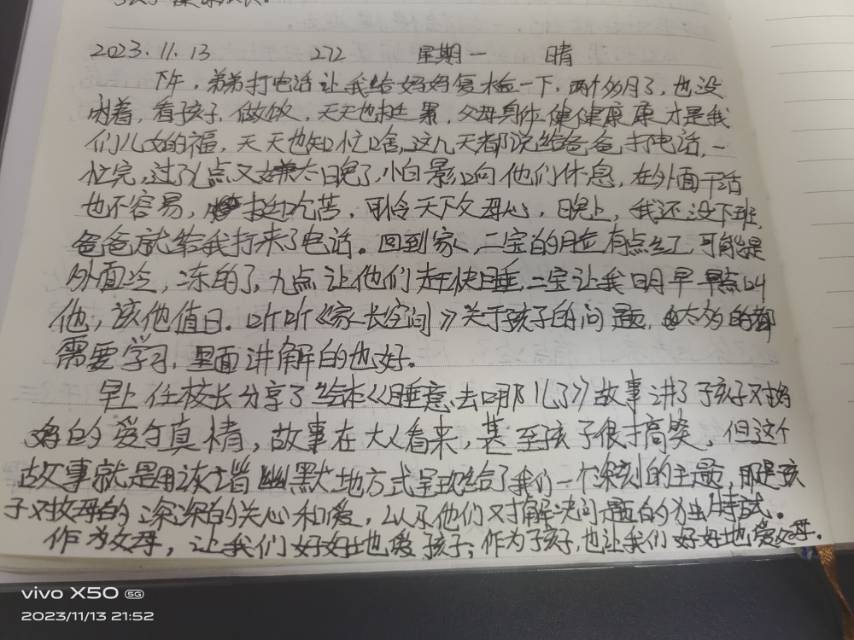 2023.11.13 272 星期一 晴
下午,弟弟打电话让我给妈妈复检一下,两个多月了,也没
闲着,看孩子,做饭,天天也挺累,父母身体健健康康才是我
们儿女的福,天天也知忙啥,这几天都说给爸爸打电话,一
忙完,过了八点又嫌太晚了,怕影响他们休息,在外面干活
也不容易,挺吃苦,可怜天下父母心,晚上,我还没下班,
爸爸就给我打来了电话。回到家,二宝的脸有点红,可能是
外面冷,冻的了,九点让他们赶快睡,二宝让我明早早点叫
他,该他值日。听听《家长空间》关于孩子的问题,太多的都
需要学习,里面讲解的也好。
早上任校长分享了绘本《睡意去哪儿了》故事讲了孩子对妈
妈的爱与真情,故事在大人看来,甚至孩子很搞笑,但这个
故事就是用诙谐幽默地方式呈现给了我们一个深刻的主题,那是孩
子对父母的深深的关心和爱,以及他们对解决问题的独特尝试。
作为父母,让我们好好地爱孩子;作为孩子,也让我们好好地爱父母。
vivo X50 5G
2023/11/13 21:52